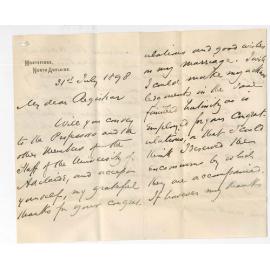 MONTEFIORE,
NORTH ADELAIDE.
31st July 1898
My dear Registrar
Will you convey
to the Professors and the
other Members of the
Staff of the University of
Adelaide, and accept
yourself, my grateful
thanks for your congrat-
ulations and good wishes
on my marriage. I wish
I could make my acknow-
ledgments in the same
language as is
employed for your congrat-
ulations, or that I could
think I deserved the
encomiums by which
they are accompanied.
If however my thanks